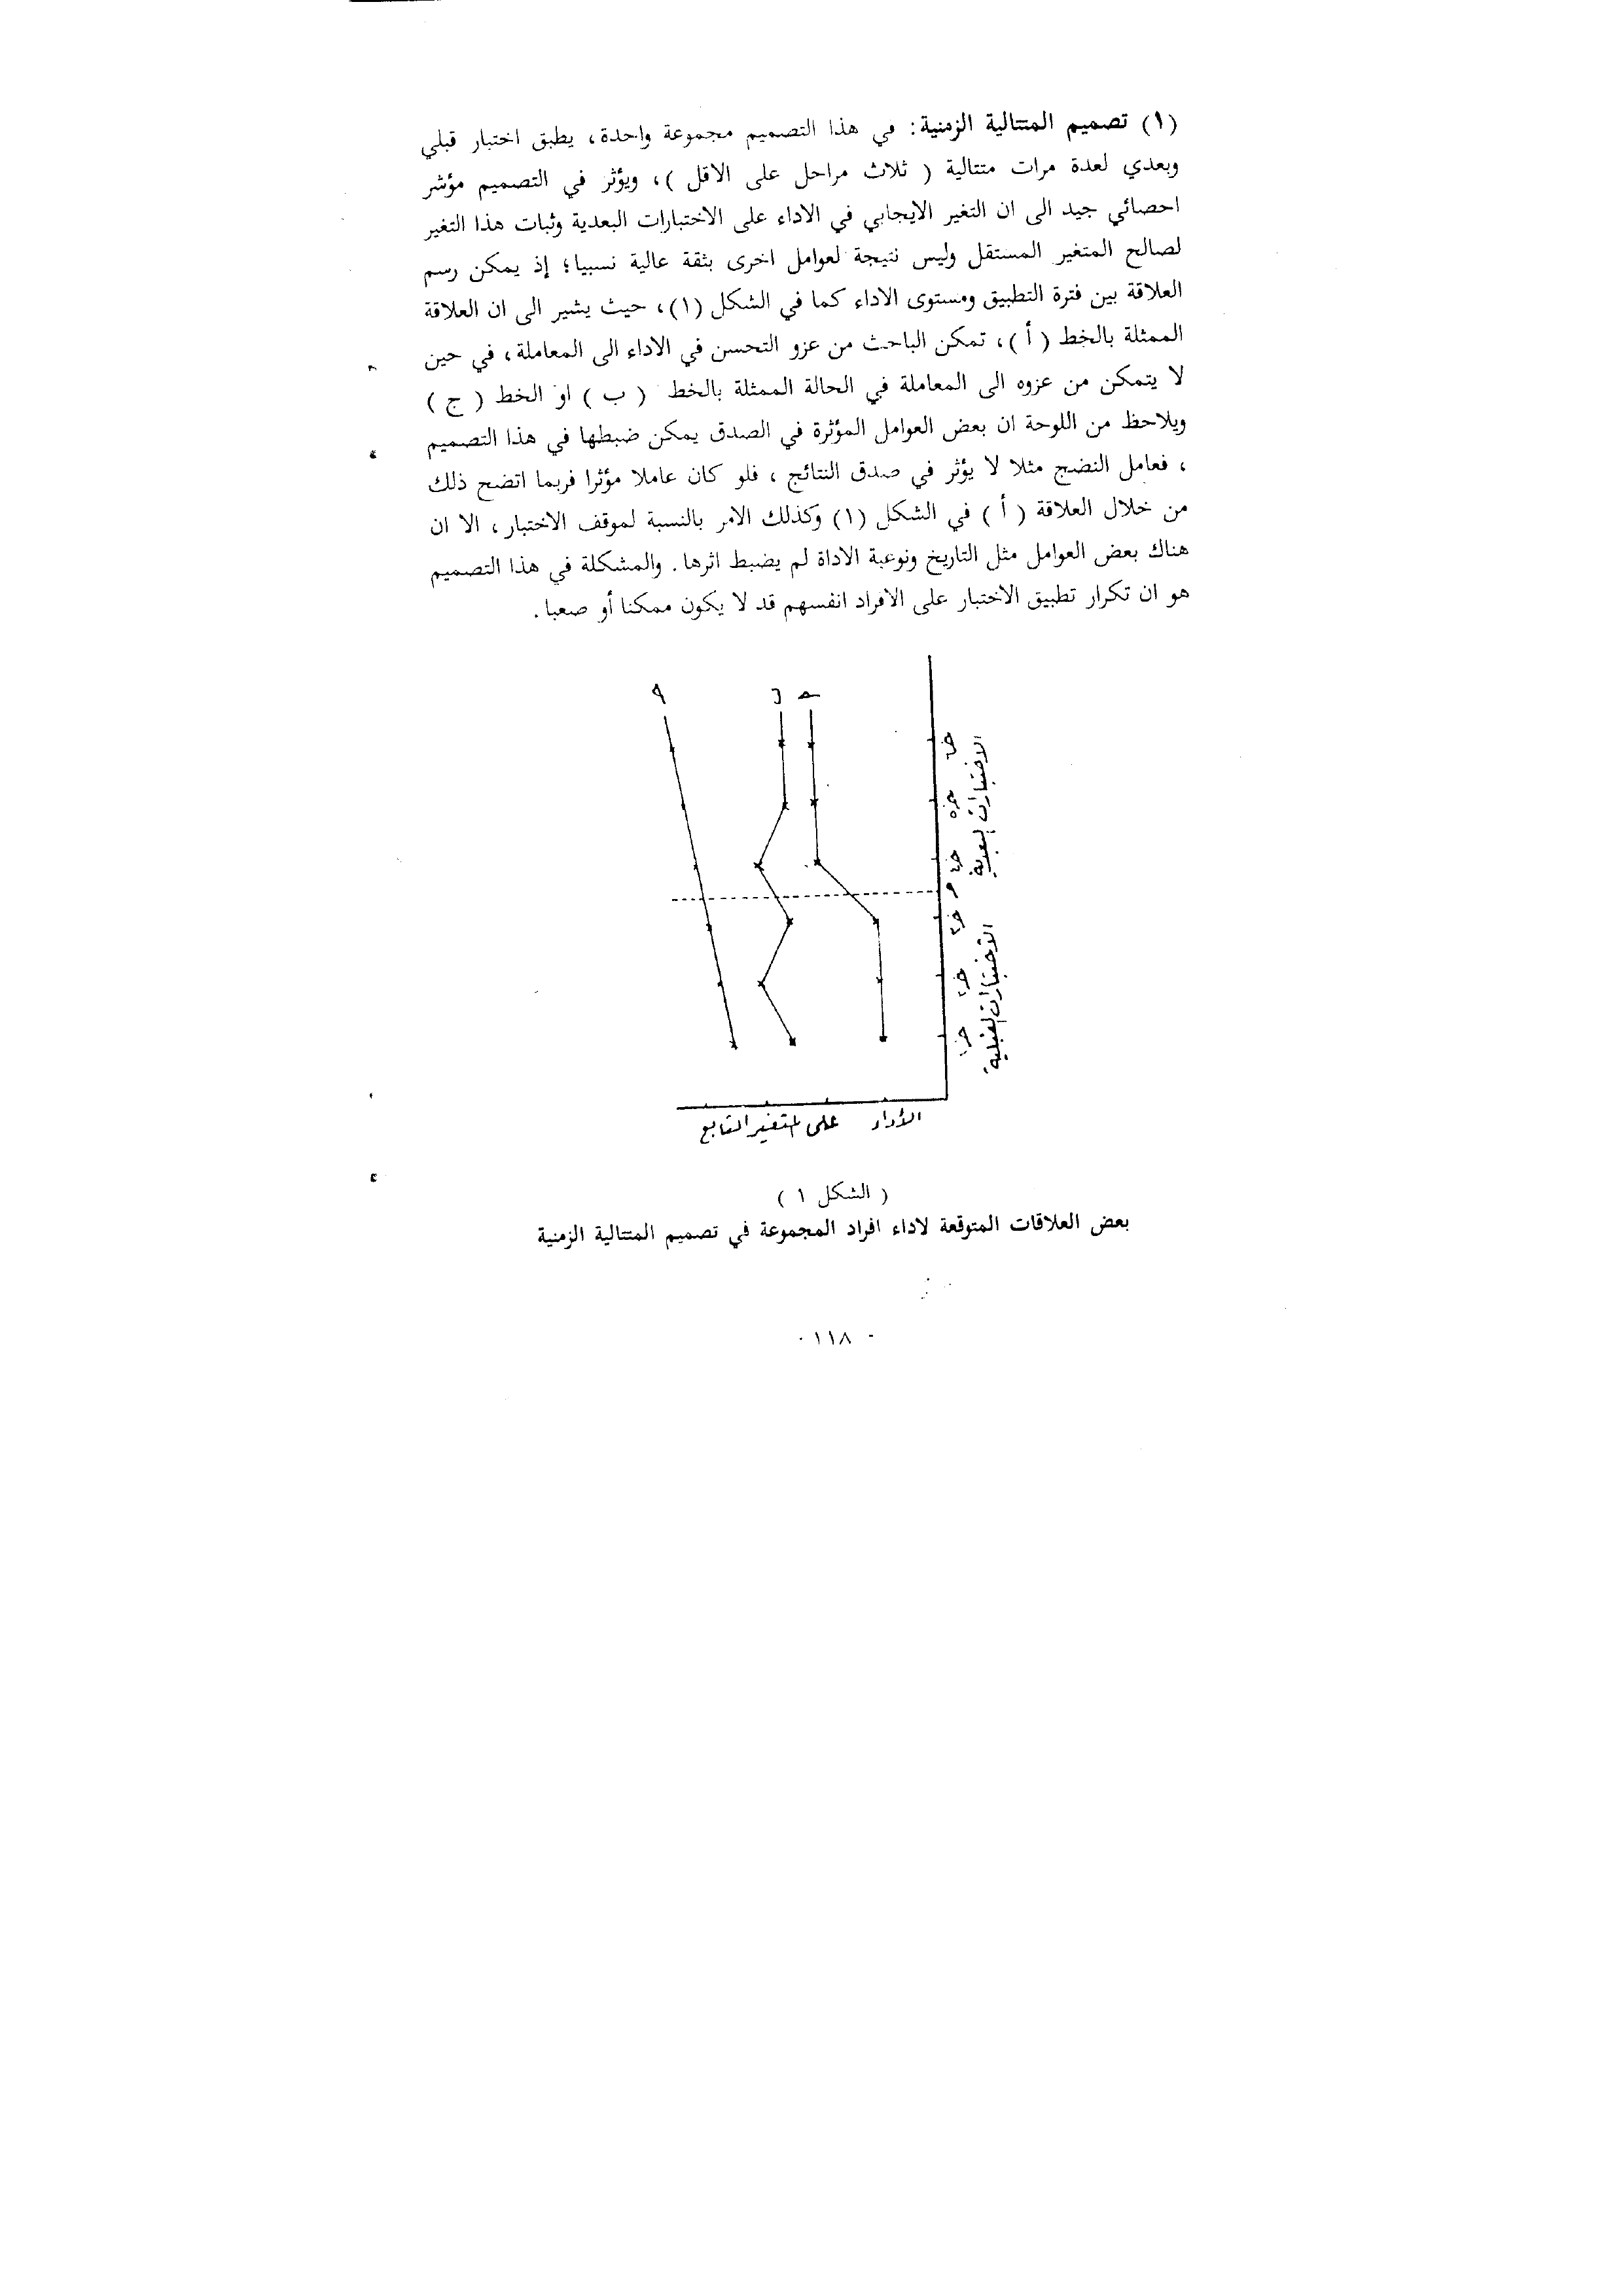 (١) تصميم المتتالية الزمنية: في هذا التصميم مجموعة واحدة، يطبق اختبار قبلي
وبعدي لعدة مرات متتالية ( ثلاث مراحل على الاقل )، ويؤثر في التصميم مؤشر
احصائي جيد الى ان التغير الايجابي في الاداء على الاختبارات البعدية وثبات هذا التغير
لصالح المتغير المستقل وليس نتيجة لعوامل اخرى بثقة عالية نسبيا؛ إذ يمكن رسم
العلاقة بين فترة التطبيق ومستوى الاداء كما في الشكل (١)، حيث يشير الى ان العلاقة
الممثلة بالخط ( أ )، تمكن الباحث من عزو التحسن في الاداء الى المعاملة، في حين
لا يتمكن من عزوه الى المعاملة في الحالة الممثلة بالخط ( ب ) او الخط ( ج )
ويلاحظ من اللوحة ان بعض العوامل المؤثرة في الصدق يمكن ضبطها في هذا التصميم
، فعامل النضج مثلا لا يؤثر في صدق النتائج ، فلو كان عاملا مؤثرا فربما اتضح ذلك
من خلال العلاقة ( أ ) في الشكل (١) وكذلك الامر بالنسبة لموقف الاختبار ، الا ان
هناك بعض العوامل مثل التاريخ ونوعية الاداة لم يضبط اثرها. والمشكلة في هذا التصميم
هو ان تكرار تطبيق الاختبار على الافراد انفسهم قد لا يكون ممكنا أو صعبا.
الاختبارات البعدية
الاختبارات القبلية
الأداء على المتغير التابع
( الشكل ١ )
بعض العلاقات المتوقعة لاداء افراد المجموعة في تصميم المتتالية الزمنية
- ١١٨ -